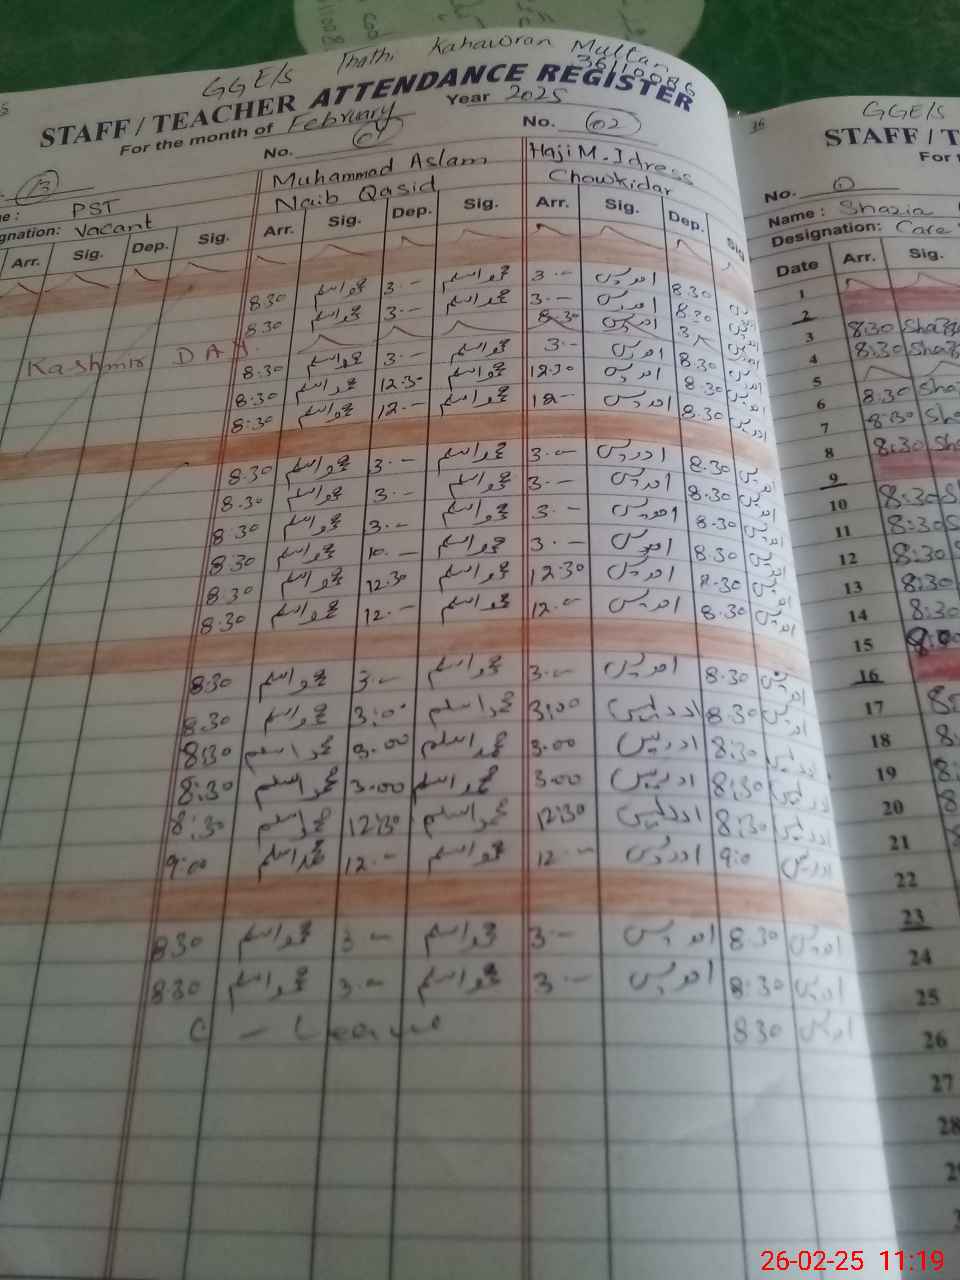 GGE/S Thathi Kahawran Multan
36110086
STAFF / TEACHER ATTENDANCE REGISTER
For the month of February Year 2025
No. 01 No. 02
13
Muhammad Aslam Haji M. Idress
PST Naib Qasid Chowkidar
gnation: Vacant
Arr. Sig. Dep. Sig. Arr. Sig. Dep. Sig. Arr. Sig. Dep. Sig
8.30 محمد اسلم 3.- محمد اسلم 3.- ادریس 8.30 ادریس
8.30 محمد اسلم 3.- محمد اسلم 3.- ادریس 8.30 ادریس
Kashmir DAY. 8.30 ادریس 3
8.30 محمد اسلم 3.- محمد اسلم 3.- ادریس 8.30 ادریس
8.30 محمد اسلم 12.30 محمد اسلم 12.30 ادریس 8.30 ادریس
8.30 محمد اسلم 12.- محمد اسلم 12- ادریس 8.30 ادریس
8.30 محمد اسلم 3.- محمد اسلم 3.- ادریس 8.30 ادریس
8.30 محمد اسلم 3.- محمد اسلم 3.- ادریس 8.30 ادریس
8.30 محمد اسلم 3.- محمد اسلم 3.- ادریس 8.30 ادریس
8.30 محمد اسلم 10.- محمد اسلم 3.- ادریس 8.30 ادریس
8.30 محمد اسلم 12.30 محمد اسلم 12.30 ادریس 8.30 ادریس
8.30 محمد اسلم 12.- محمد اسلم 12.- ادریس 8.30 ادریس
8.30 محمد اسلم 3.- محمد اسلم 3.- ادریس 8.30 ادریس
8.30 محمد اسلم 3:00 محمد اسلم 3:00 ادریس 8.30 ادریس
8:30 محمد اسلم 3.00 محمد اسلم 3.00 ادریس 8:30 ادریس
8:30 محمد اسلم 3.00 محمد اسلم 3.00 ادریس 8:30 ادریس
8:30 محمد اسلم 12:30 محمد اسلم 12:30 ادریس 8:30 ادریس
9:00 محمد اسلم 12.- محمد اسلم 12.- ادریس 9:0 ادریس
830 محمد اسلم 3- محمد اسلم 3.- ادریس 8.30 ادریس
830 محمد اسلم 3.- محمد اسلم 3.- ادریس 8:30 ادریس
C - Leave 830 ادریس
36 GGE/S
STAFF / T
For
No. 1
Name : Shazia
Designation: Care
Date Arr. Sig.
1
2
3 8:30 Shaz
4 8:30 Shaz
5
6 8.30 Sha
7 8:30 Sh
8 8:30 Sh
9
10 8:30 S
11 8:30
12 8:30
13 8:30
14 8:30
15 8:00
16
17
18
19
20
21
22
23
24
25
26
27
28
26-02-25 11:19